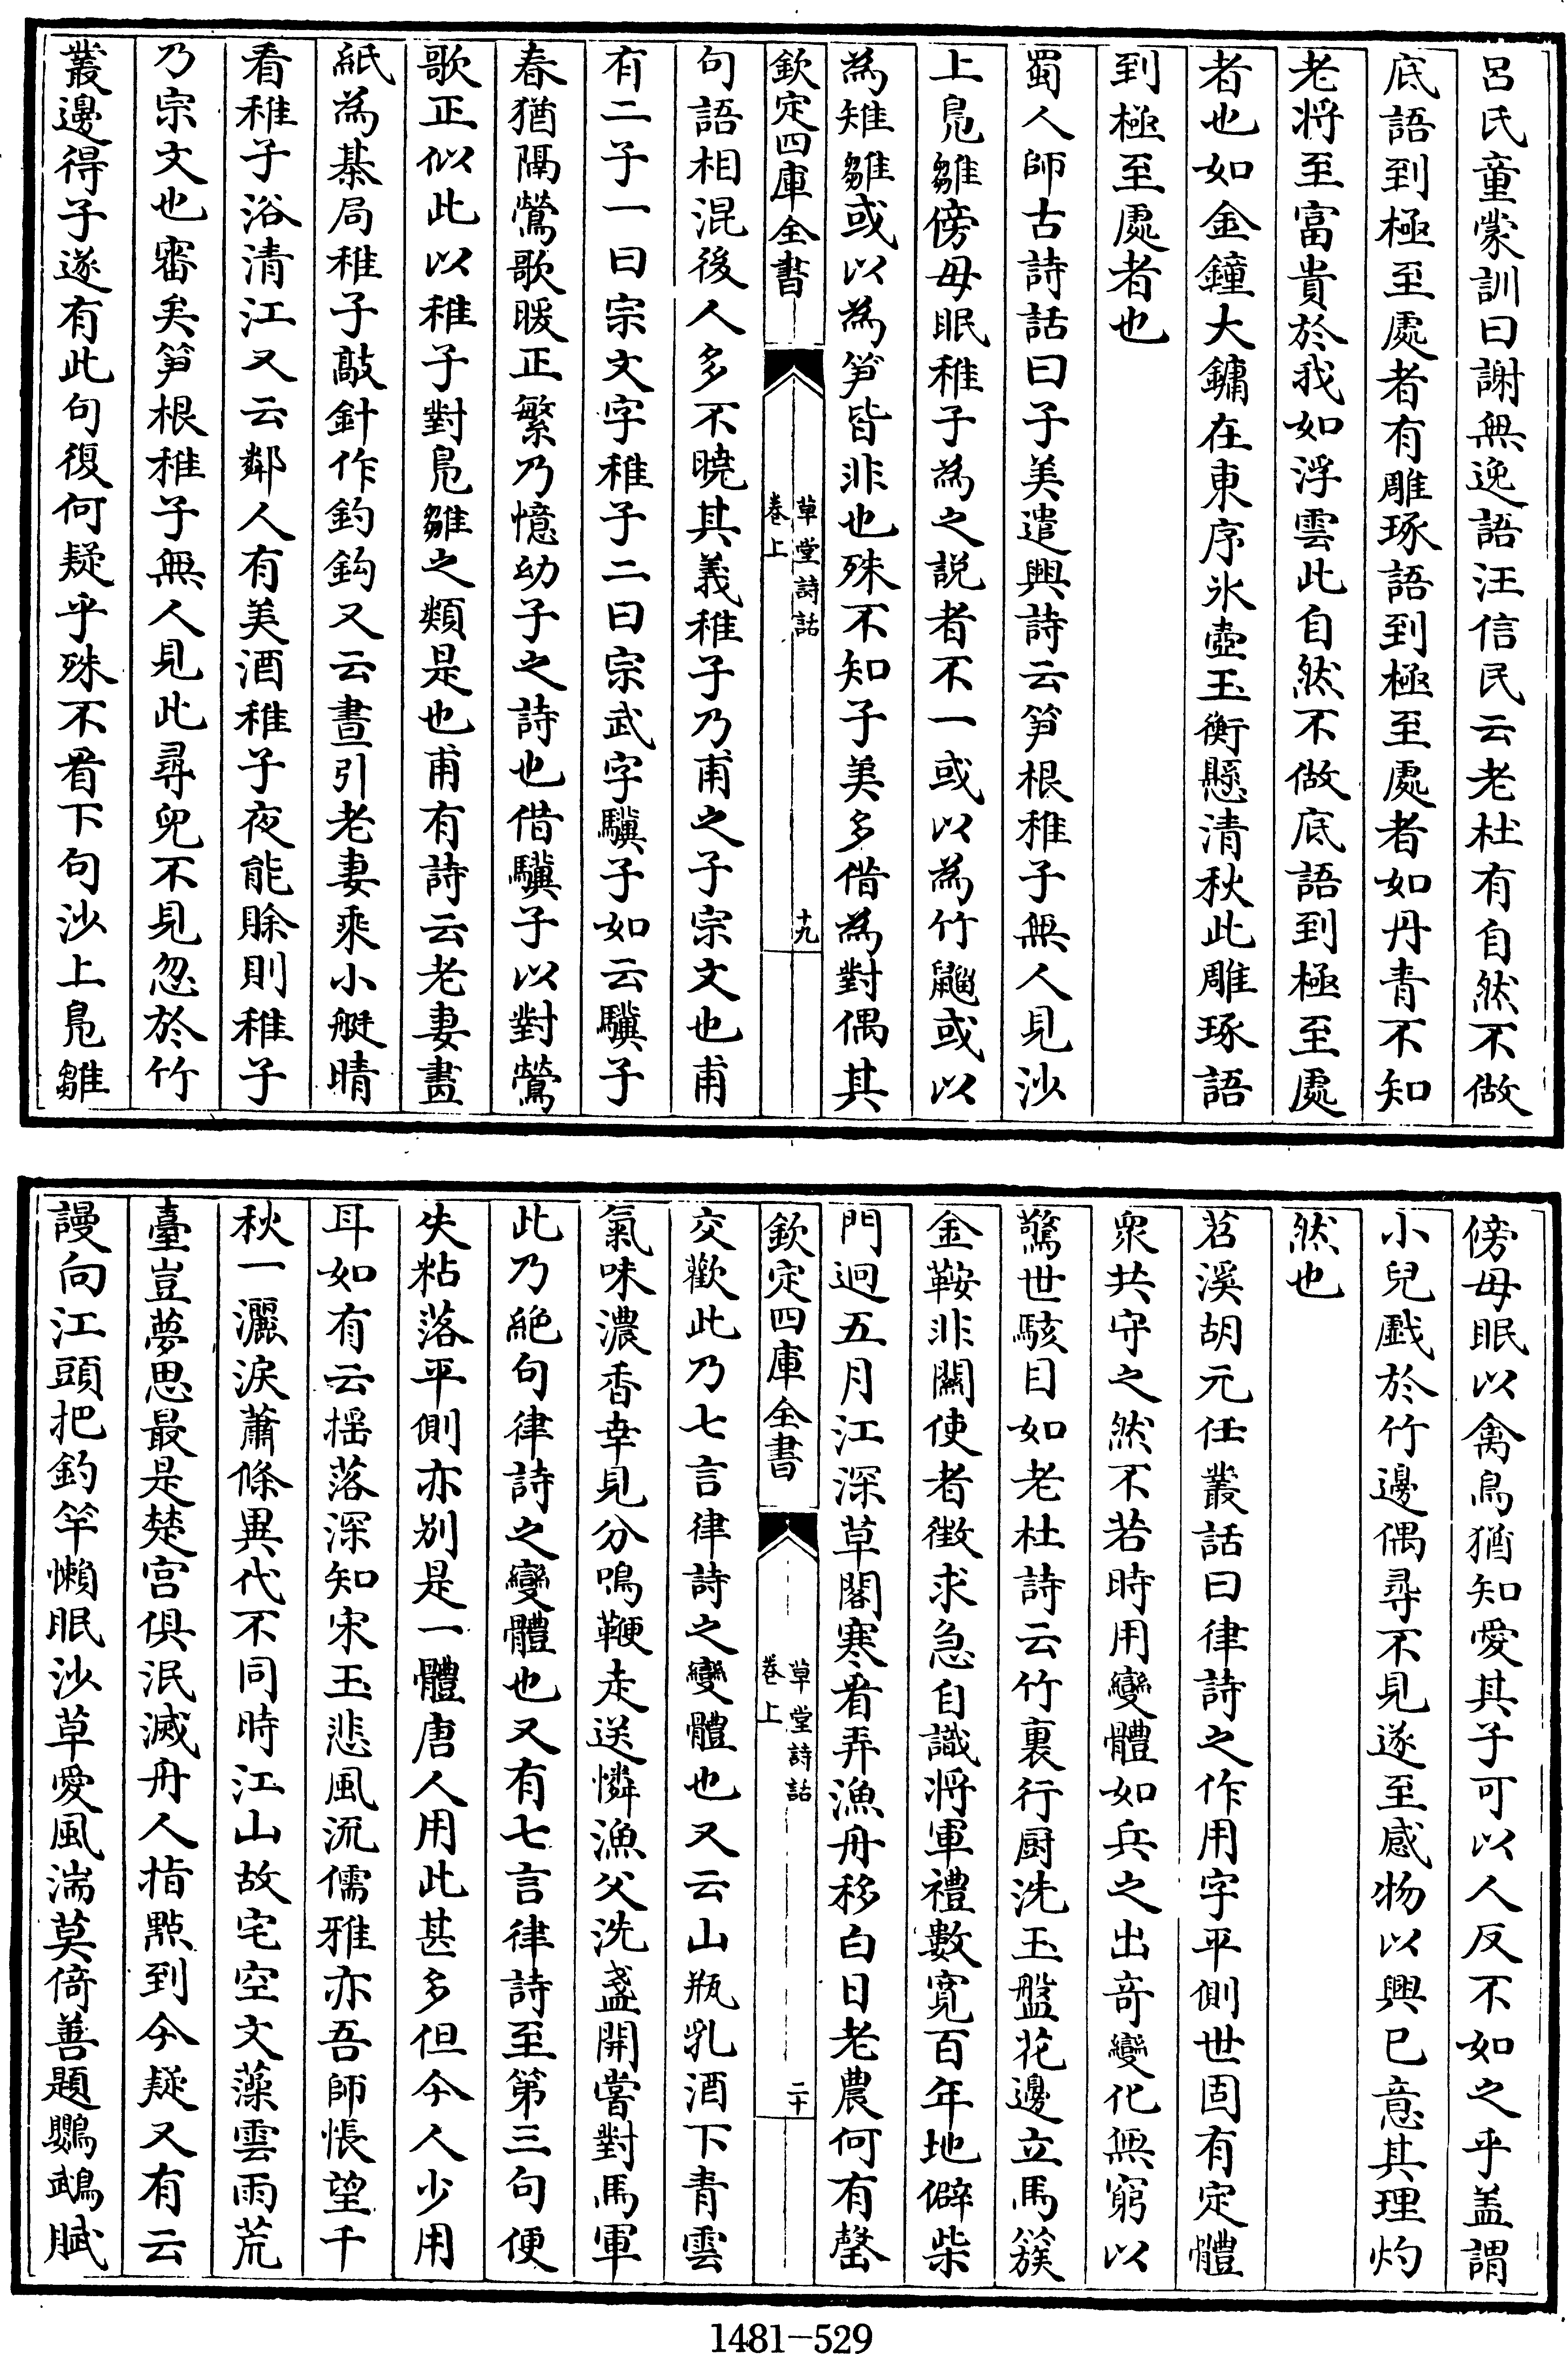 呂氏童蒙訓曰謝無逸語汪信民云老杜有自然不做
底語到極至處者有雕琢語到極至處者如丹青不知
老將至富貴於我如浮雲此自然不做底語到極至處
者也如金鐘大鏞在東序氷壺玉衡懸清秋此雕琢語
到極至處者也
蜀人師古詩話曰子美遣興詩云笋根稚子無人見沙
上鳬雛傍母眠稚子為之説者不一或以為竹䶉或以
為雉雛或以為笋皆非也殊不知子美多借為對偶其
欽定四庫全書
草堂詩話
卷上
十九
句語相混後人多不曉其義稚子乃甫之子宗文也甫
有二子一曰宗文字稚子二曰宗武字驥子如云驥子
春猶隔鶯歌暖正繁乃憶幼子之詩也借驥子以對鶯
歌正似此以稚子對鳬雛之類是也甫有詩云老妻畫
紙為棊局稚子敲針作釣鈎又云晝引老妻乘小艇晴
看稚子浴清江又云鄰人有美酒稚子夜能賒則稚子
乃宗文也審矣笋根稚子無人見此尋兒不見忽於竹
叢邊得子遂有此句復何疑乎殊不看下句沙上鳬雛
傍母眠以禽鳥猶知愛其子可以人反不如之乎盖謂
小兒戲於竹邊偶尋不見遂至感物以興已意其理灼
然也
苕溪胡元任叢話曰律詩之作用字平側世固有定體
衆共守之然不若時用變體如兵之出竒變化無窮以
驚世駭目如老杜詩云竹裏行厨洗玉盤花邊立馬簇
金鞍非關使者徵求急自識將軍禮數寛百年地僻柴
門迥五月江深草閣寒看弄漁舟移白日老農何有罄
欽定四庫全書
草堂詩話
卷上
二十
交歡此乃七言律詩之變體也又云山瓶乳酒下青雲
氣味濃香幸見分鳴鞭走送憐漁父洗盞開嘗對馬軍
此乃絶句律詩之變體也又有七言律詩至第三句便
失粘落平側亦别是一體唐人用此甚多但今人少用
耳如有云揺落深知宋玉悲風流儒雅亦吾師悵望千
秋一灑淚蕭條異代不同時江山故宅空文藻雲雨荒
臺豈夢思最是楚宫俱泯滅舟人指點到今疑又有云
謾向江頭把釣竿懶眠沙草愛風湍莫倚善題鸚鵡賦
1481-529